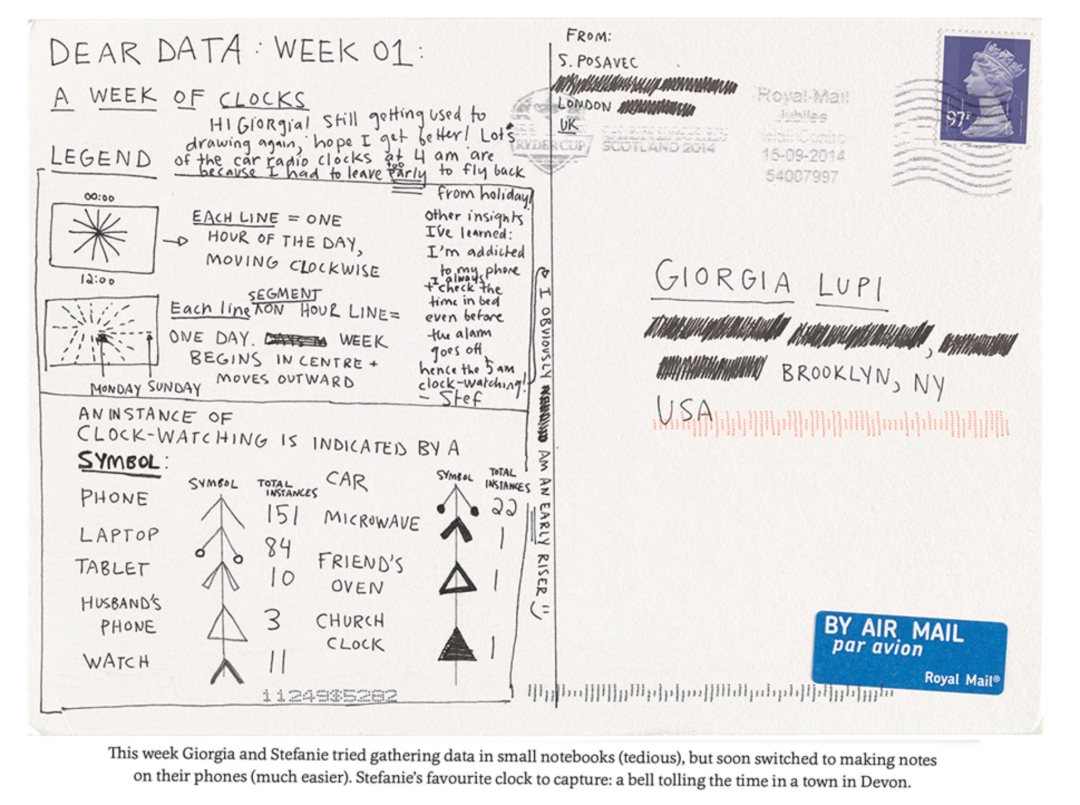 DEAR DATA: WEEK 01:
A WEEK OF CLOCKS
HI Giorgia! Still getting used to
drawing again, hope I get better! Lots
of the car radio clocks at 4 am are
because I had to leave too early to fly back
from holiday!
other insights
I've learned:
I'm addicted
to my phone
+ I always check the
time in bed
even before
the alarm
goes off
hence the 5 am
clock-watching!
- Stef
LEGEND
00:00
12:00
EACH LINE = ONE
HOUR OF THE DAY,
MOVING CLOCKWISE
Each line SEGMENT ON HOUR LINE=
ONE DAY. WEEK
BEGINS IN CENTRE +
MOVES OUTWARD
MONDAY SUNDAY
AN INSTANCE OF
CLOCK-WATCHING IS INDICATED BY A
SYMBOL:
SYMBOL TOTAL INSTANCES
PHONE 151
LAPTOP 84
TABLET 10
HUSBAND'S
PHONE 3
WATCH 11
SYMBOL TOTAL INSTANCES
CAR 22
MICROWAVE 1
FRIEND'S
OVEN 1
CHURCH
CLOCK 1
1124935282
I OBVIOUSLY AM AN EARLY RISER
FROM:
S. POSAVEC
LONDON
UK
RYDER CUP
SCOTLAND 2014
Royal Mail
Jubilee
Mail Centre
15-09-2014
54007997
97p
GIORGIA LUPI
BROOKLYN, NY
USA
BY AIR MAIL
par avion
Royal Mail®
This week Giorgia and Stefanie tried gathering data in small notebooks (tedious), but soon switched to making notes
on their phones (much easier). Stefanie's favourite clock to capture: a bell tolling the time in a town in Devon.